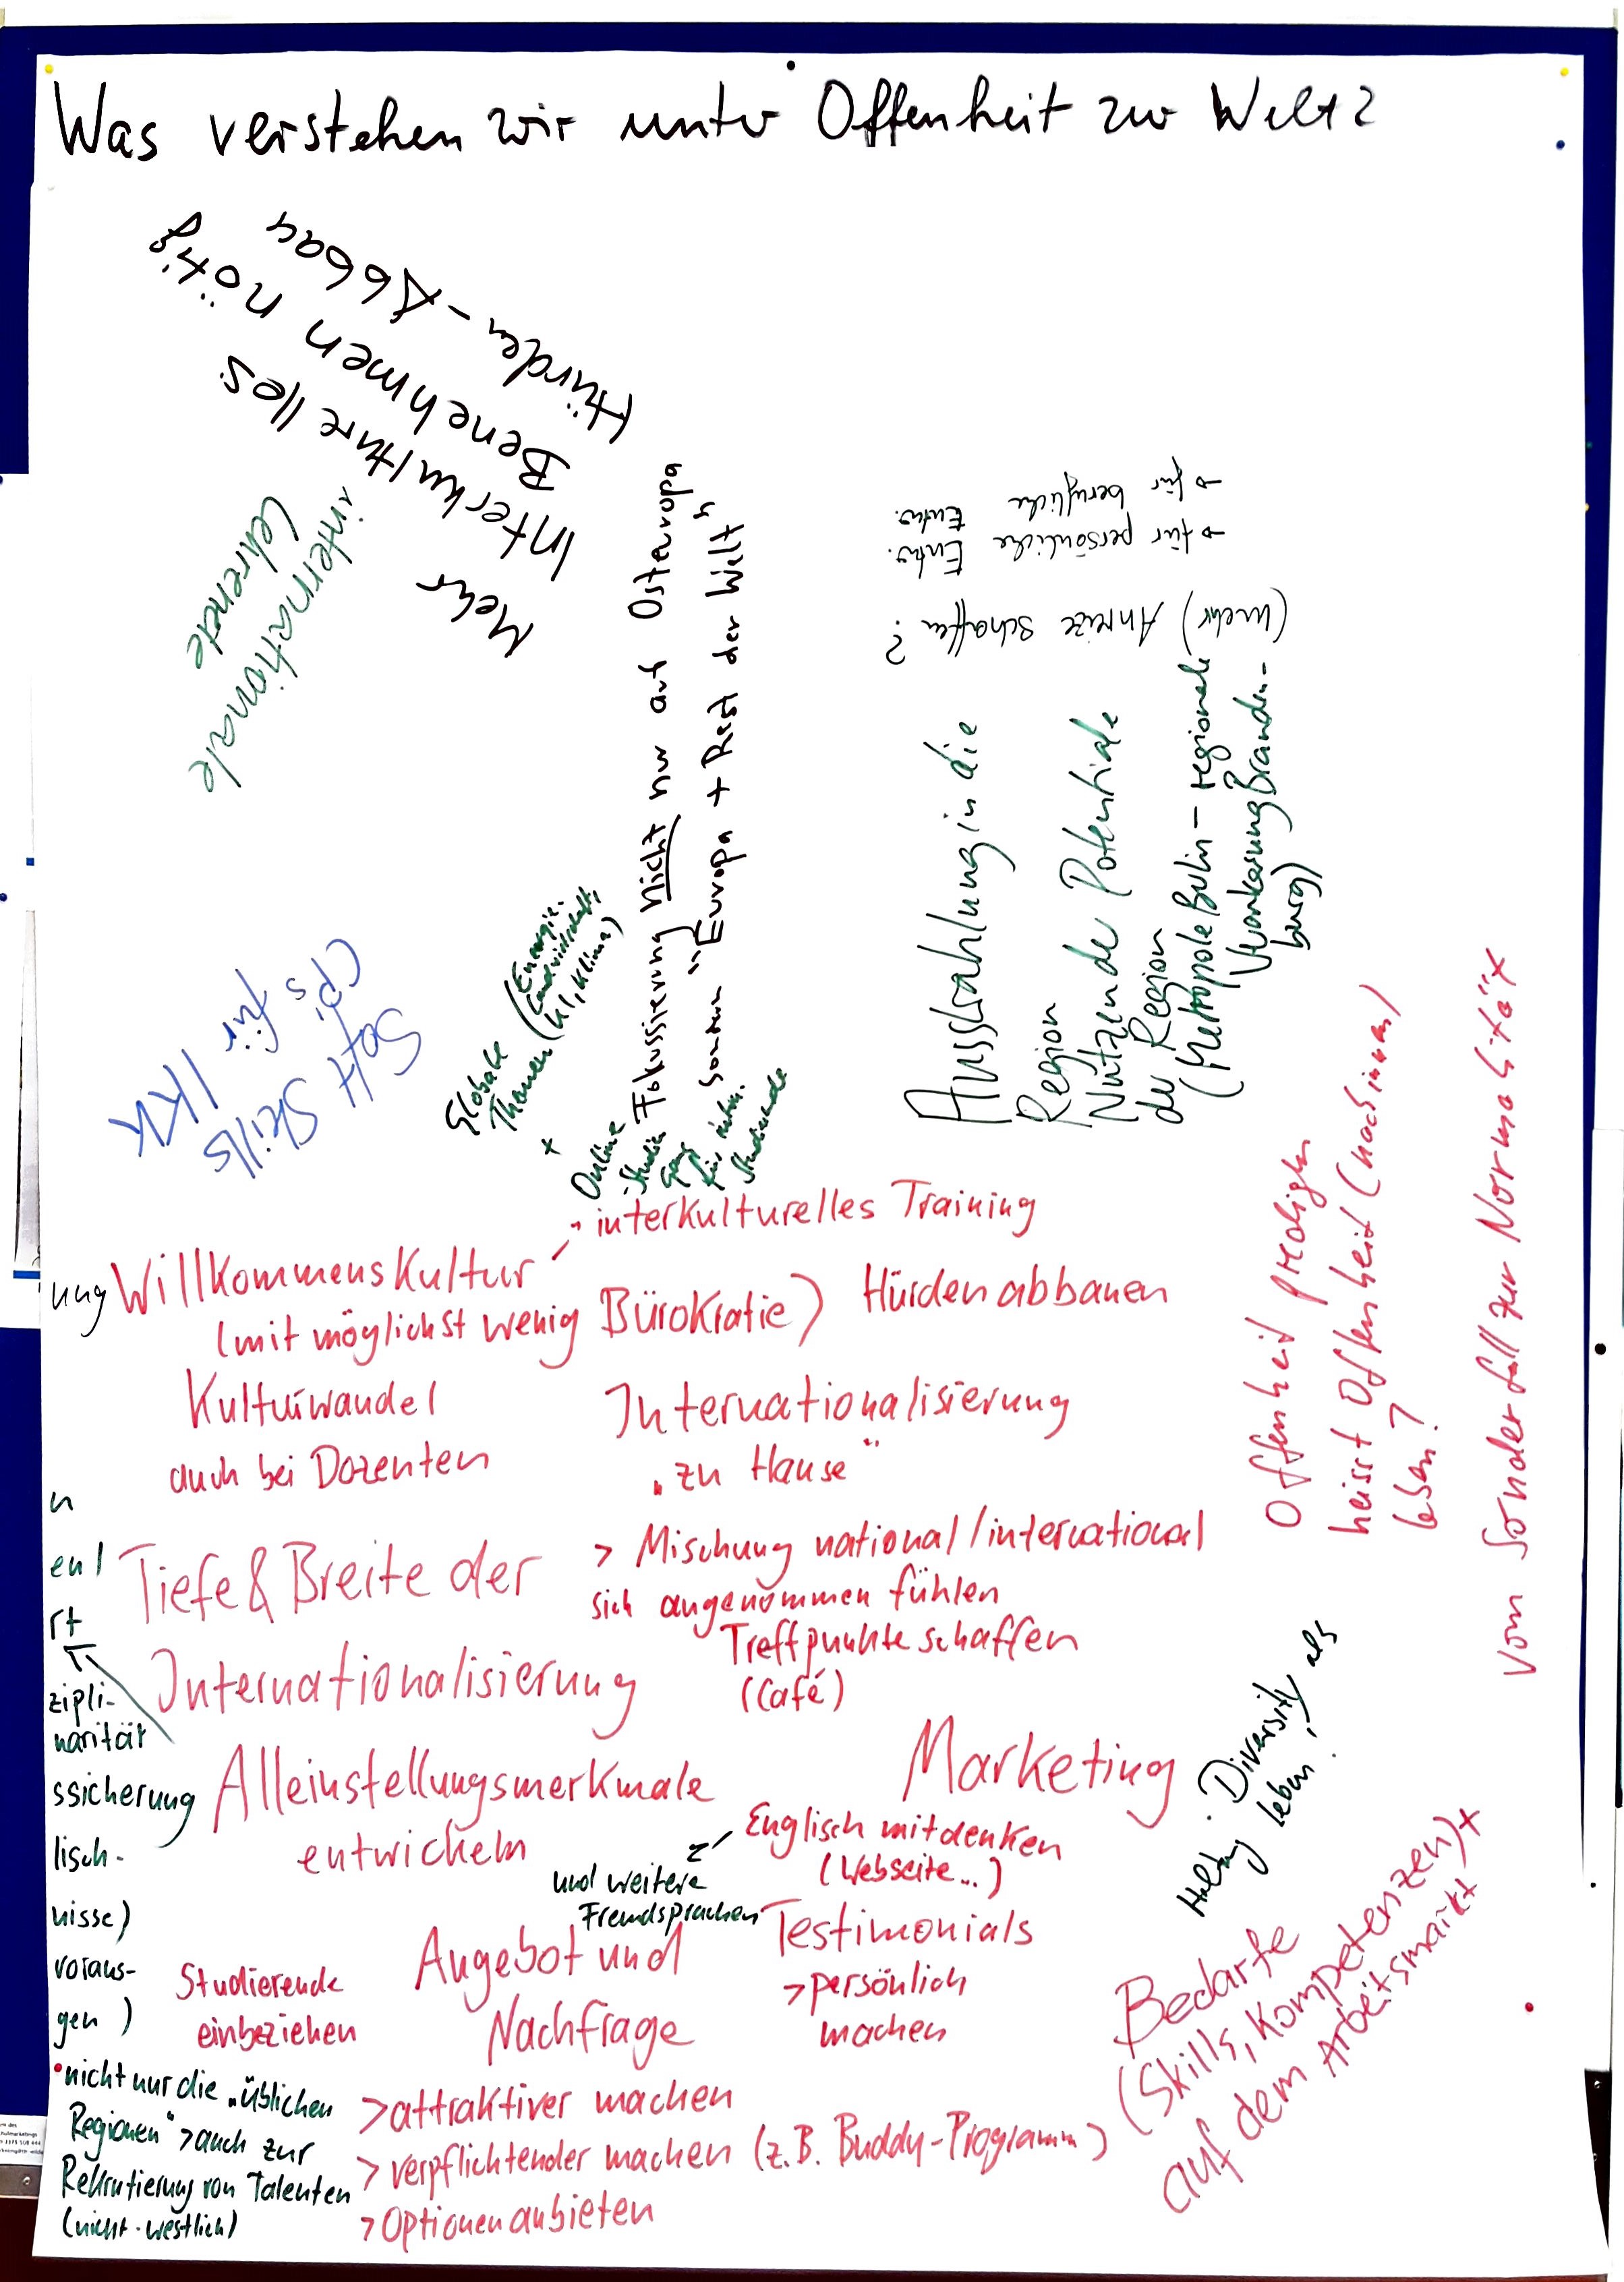 Was verstehen wir unter Offenheit zur Welt?
Hürden-Abbau
Mehr
Interkulturelles
Benehmen nötig
internationale
Lehrende
Fokussierung nicht nur auf Osteuropa
sondern "Europa + Rest der Welt"
(mehr) Anreize schaffen?
→ für persönliche Entw.
→ für berufliche Entw.
Ausstrahlung in die
Region
Nutzen de Potentiale
der Region
(Metropole Berlin – regionale
Verankerung Branden-
burg)
Globale
Themen (Energie,
Landwirtschaft,
KI, Klima)
+
Online
Studien
für intern.
Studierende
Soft Skills
CPs für IKK
- interkulturelles Training
ung
Willkommenskultur
(mit möglichst wenig Bürokratie)
Hürden abbauen
Kulturwandel
auch bei Dozenten
Internationalisierung
„zu Hause"
Offenheit predigen
heisst Offenheit (nach innen)
leben?
Vom Sonderfall zur Normalität
n
en/
rt
zipli-
narität
ssicherung
lisch-
nisse)
voraus-
gen)
Tiefe & Breite der
Internationalisierung
> Mischung national/international
sich angenommen fühlen
Treffpunkte schaffen
(Café)
Alleinstellungsmerkmale
entwickeln
Marketing
Englisch mitdenken
(Webseite...)
und weitere
Fremdsprachen
Testimonials
> persönlich
machen
Diversity als
Haltung leben!
Studierende
einbeziehen
Angebot und
Nachfrage
Bedarfe
(Skills, Kompetenzen)+
auf dem Arbeitsmarkt
• nicht nur die „üblichen
Regionen" > auch zur
Rekrutierung von Talenten
(nicht-westlich)
> attraktiver machen
> verpflichtender machen (z.B. Buddy-Programm)
> Optionen anbieten